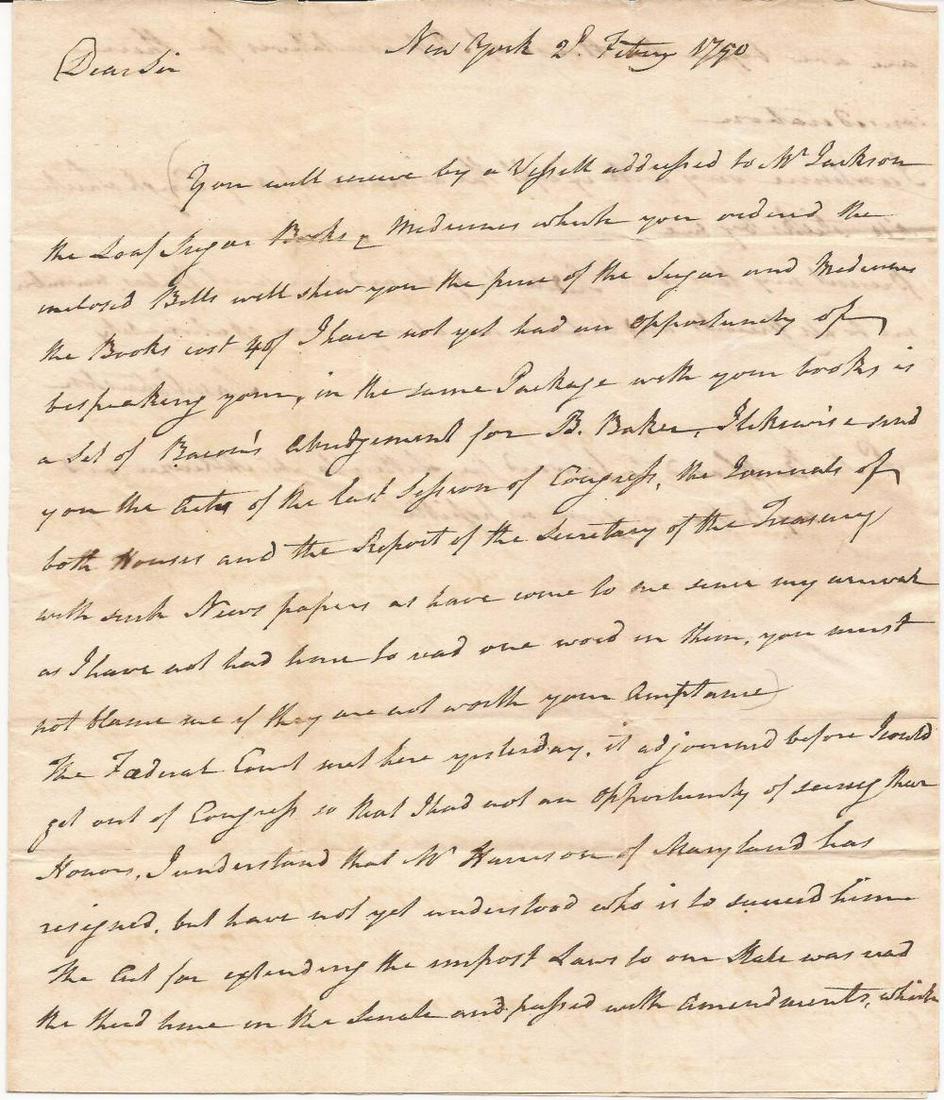 New York 2d. Febry 1790
Dear Sir
You will receive by a Vessell addressed to Mr Jackson
the Loaf Sugar Books & Medicines which you ordered the
inclosed Bills will shew you the price of the Sugar and Medicines
the Books cost 40/ I have not yet had an opportunity of
bespeaking yours, in the same Package with your books is
a set of Bacon's abridgement for B. Baker, I likewise send
you the Acts of the last Session of Congress, the Journals of
both Houses and the Report of the Secretary of the Treasury
with such News papers as have come to me since my arrival
as I have not had time to read one word in them, you must
not blame me if they are not worth your Acceptance)
The Fœderal Court met here yesterday. it adjourned before I could
get out of Congress so that I had not an opportunity of seeing their
Honors, I understand that Mr Harrison of Maryland has
resigned, but have not yet understood who is to succeed him
The Act for extending the impost Laws to our State was read
the third time in the Senate and passed with amendments, which